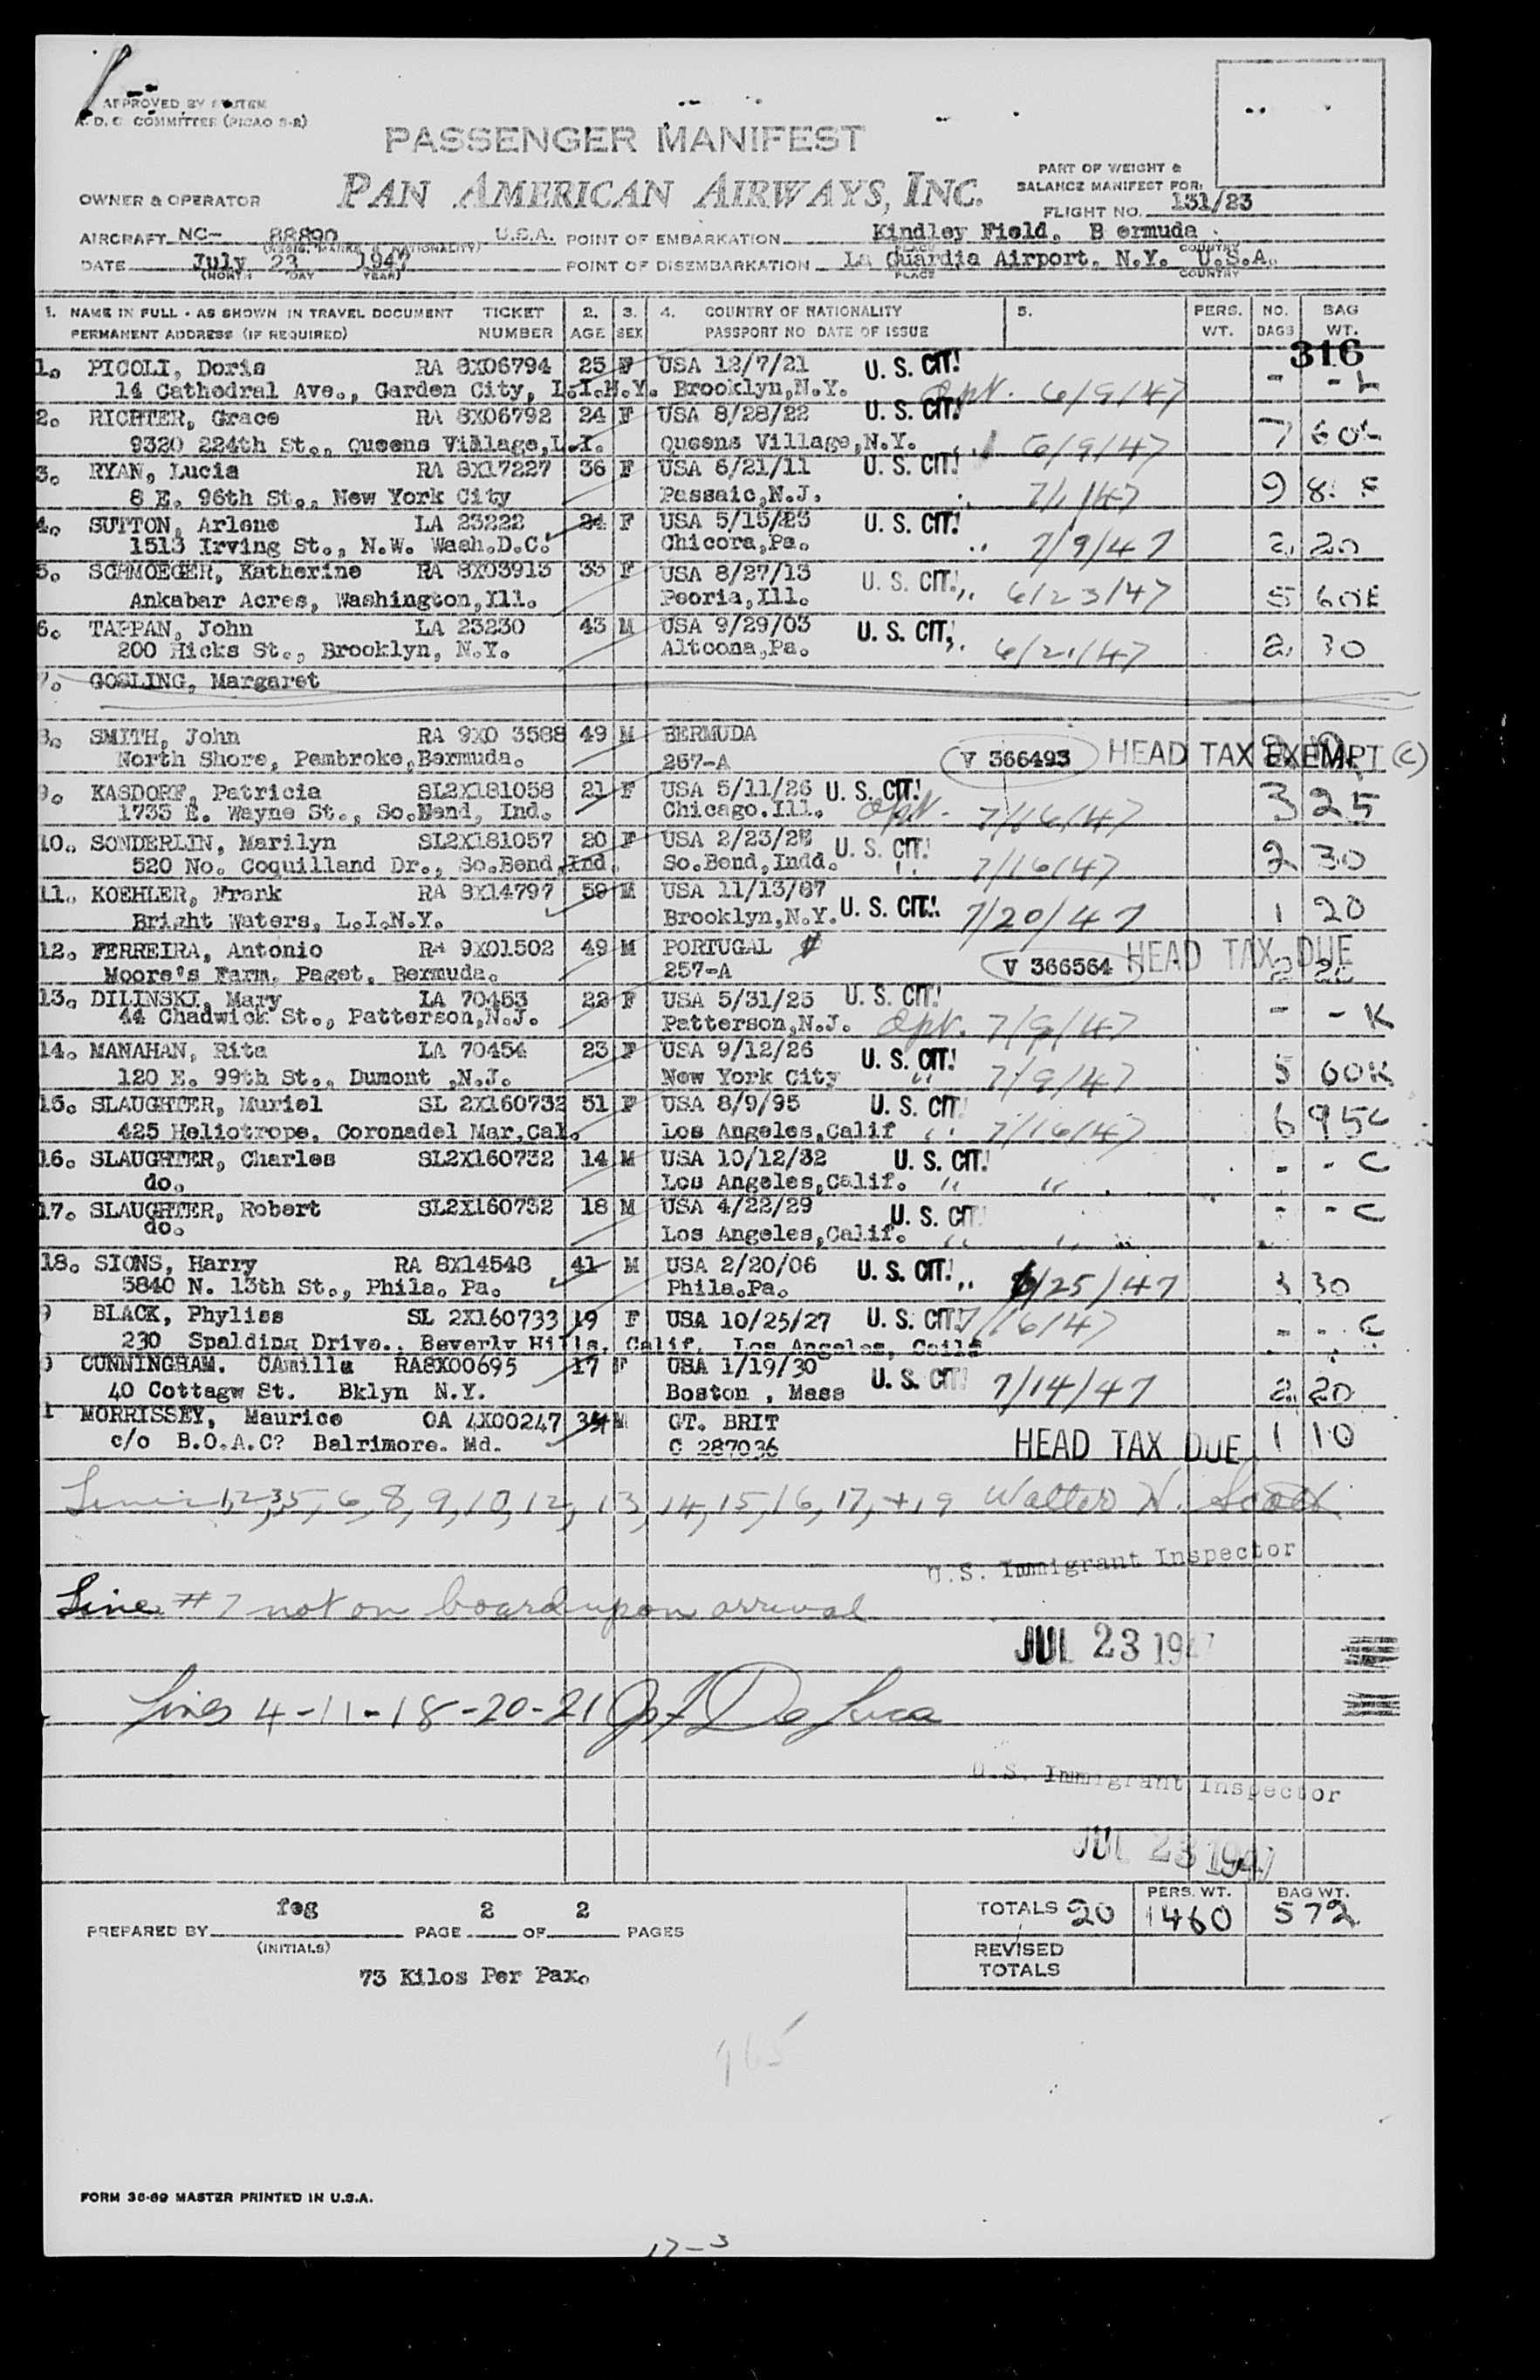 APPROVED BY SYSTEM
A. D. C. COMMITTEE (PICAO S-R)
PASSENGER MANIFEST
PART OF WEIGHT &
BALANCE MANIFEST FOR:
OWNER & OPERATOR PAN AMERICAN AIRWAYS, INC.
FLIGHT NO. 131/23
AIRCRAFT NC- 88890 U.S.A. POINT OF EMBARKATION Kindley Field, B ermuda
DATE July 23 1947 POINT OF DISEMBARKATION La Guardia Airport. N.Y. U.S.A.
(MONTH DAY YEAR) PLACE COUNTRY
1. NAME IN FULL - AS SHOWN IN TRAVEL DOCUMENT TICKET 2. 3. 4. COUNTRY OF NATIONALITY 5. PERS. NO. BAG
PERMANENT ADDRESS (IF REQUIRED) NUMBER AGE SEX PASSPORT NO DATE OF ISSUE WT. BAGS WT.
316
1. PICOLI, Doris RA 8X06794 25 F USA 12/7/21 U. S. CIT. - -
14 Cathedral Ave., Garden City, L.I.N.Y. Brooklyn,N.Y. 6/9/47
2. RICHTER, Grace RA 8X06792 24 F USA 8/28/22 U. S. CIT. 7 60
9320 224th St., Queens Village,L.I. Queens Village,N.Y. 6/9/47
3. RYAN, Lucia RA 8X17227 36 F USA 6/21/11 U. S. CIT. 9
8 E. 96th St., New York City Passaic,N.J. 7/1/47
4. SUTTON, Arlene LA 23222 24 F USA 5/15/23 U. S. CIT.
1513 Irving St., N.W. Wash.D.C. Chicora,Pa. 7/9/47 2 20
5. SCHMOEGER, Katherine RA 8X03913 33 F USA 8/27/13 U. S. CIT.
Ankabar Acres, Washington,Ill. Peoria,Ill. 6/23/47 5 60E
6. TAPPAN, John LA 23230 43 M USA 9/29/03 U. S. CIT.
200 Hicks St., Brooklyn, N.Y. Altoona,Pa. 6/2/47 2 30
7. GOSLING, Margaret
8. SMITH, John RA 9X0 3588 49 M BERMUDA
North Shore, Pembroke,Bermuda. 257-A V 366493 HEAD TAX EXEMPT (C)
9. KASDORF, Patricia SL2X181058 21 F USA 5/11/26 U. S. CIT. 3 25
1733 E. Wayne St., So.Bend, Ind. Chicago.Ill. 7/16/47
10. SONDERLIN, Marilyn SL2X181057 20 F USA 2/23/2 U. S. CIT. 2 30
520 No. Coquilland Dr., So.Bend,Ind. So.Bend,Indd. 7/16/47
11. KOEHLER, Frank RA 8X14797 59 M USA 11/13/87
Bright Waters, L.I.N.Y. Brooklyn,N.Y. U. S. CIT. 7/20/47 1 20
12. FERREIRA, Antonio RA 9X01502 49 M PORTUGAL
Moore's Farm, Paget, Bermuda. 257-A V 366564 HEAD TAX DUE
13. DILINSKI, Mary LA 70453 22 F USA 5/31/25 U. S. CIT.
44 Chadwick St., Patterson,N.J. Patterson,N.J. 7/9/47 - - K
14. MANAHAN, Rita LA 70454 23 F USA 9/12/26 U. S. CIT.
120 E. 99th St., Dumont ,N.J. New York City " 7/9/47 5 60K
15. SLAUGHTER, Muriel SL 2X160732 51 F USA 8/9/95 U. S. CIT
425 Heliotrope, Coronadel Mar,Cal. Los Angeles,Calif " 7/16/47 6 95C
16. SLAUGHTER, Charles SL2X160732 14 M USA 10/12/32 U. S. CIT. - - C
do. Los Angeles,Calif. " "
17. SLAUGHTER, Robert SL2X160732 18 M USA 4/22/29 U. S. CIT - - C
do. Los Angeles,Calif. " "
18. SIONS, Harry RA 8X14548 41 M USA 2/20/06 U. S. CIT.
5840 N. 13th St., Phila. Pa. Phila.Pa. " 6/25/47 3 30
9 BLACK, Phyliss SL 2X160733 19 F USA 10/25/27 U. S. CIT. 7/16/47 - - C
230 Spalding Drive., Beverly Hills, Calif. Los Angeles, Calif
CUNNINGHAM. CAmilla RA8X00695 17 F USA 1/19/30 U. S. CIT
40 Cottagw St. Bklyn N.Y. Boston , Mass 7/14/47 2 20
1 MORRISSEY, Maurice OA 4X00247 34 M GT. BRIT
c/o B.O.A.C? Balrimore. Md. C 287036 HEAD TAX DUE 1 10
Lines 1,2,3,5, 6, 8, 9, 10, 12, 13, 14, 15, 16, 17, + 19 Walter N. Scott
U.S. Immigrant Inspector
Line #7 not on board upon arrival
JUL 23 194
Lines 4-11-18-20-21 De Luca
U.S. Immigrant Inspector
JUL 23 1947
PREPARED BY feg PAGE 2 OF 2 PAGES
(INITIALS)
TOTALS 20 PERS. WT. 1460 BAG WT. 572
REVISED
TOTALS
73 Kilos Per Pax.
965
FORM 36-69 MASTER PRINTED IN U.S.A.
17-3